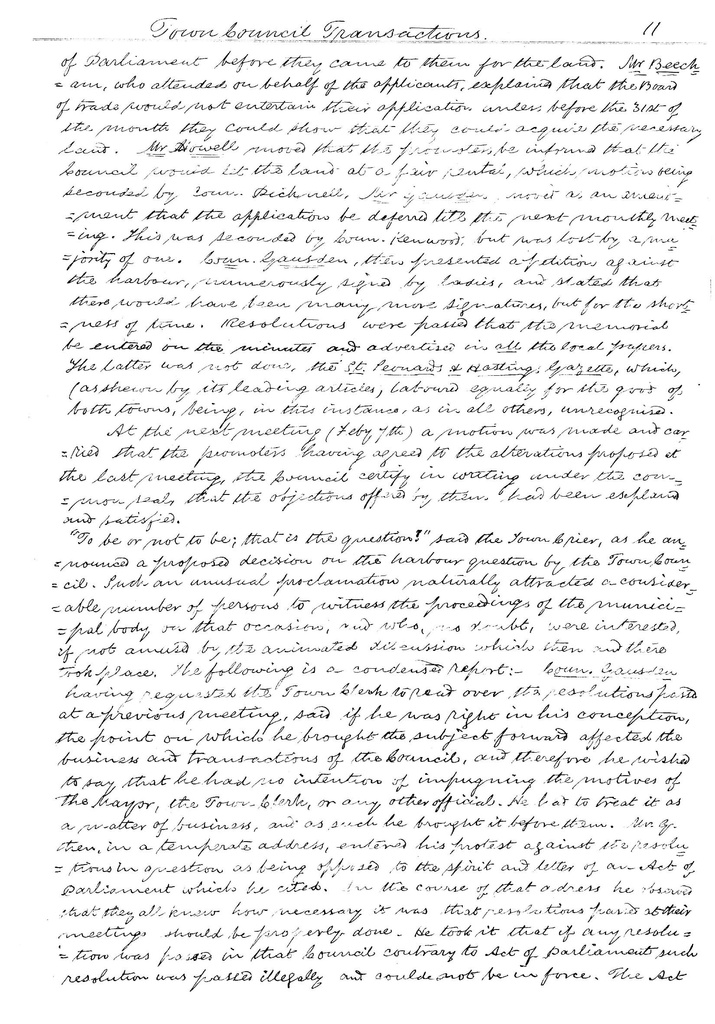 Town Council Transactions. 11
of Parliament before they came to them for the land. Mr Beech
=am, who attended on behalf of the applicants, explained that the Board
of trade would not entertain their application unless before the 31st of
the month they could show that they could acquire the necessary
land. Mr Howell moved that the promoters be informed that the
Council would let the land at a fair rental, which motion being
seconded by Coun. Bicknell, Mr Gausden moved as an amend=
=ment that the application be deferred till the next monthly meet=
=ing. This was seconded by Coun. Kenwood, but was lost by a ma=
=jority of one. Coun. Gausden, then presented a petition against
the harbour, numerously signed by ladies, and stated that
there would have been many more signatures, but for the short=
=ness of time. Resolutions were passed that the memorial
be entered on the minutes and advertised in all the local papers.
The latter was not done, the St. Leonards & Hastings Gazette, which,
(as shewn by its leading articles, laboured equally for the good of
both towns, being, in this instance, as in all others, unrecognised.
At the next meeting (Feby 7th) a motion was made and car=
=ried that the promoters having agreed to the alterations proposed at
the last meeting, the Council certify in writing under the com=
=mon seal, that the objections offered by them had been explaind
and satisfied.
"To be or not to be; that is the question!" said the Town Crier, as he an=
=nounced a proposed decision on the harbour question by the Town Coun=
=cil. Such an unusual proclamation naturally attracted a consider=
=able number of persons to witness the proceedings of the munici=
=pal body on that occasion, and who, no doubt, were interested,
if not amused by the animated discussion which then and there
took place. The following is a condensed report:- Coun. Gausden
having requested the Town Clerk to read over the resolutions passed
at a previous meeting, said if he was right in his conception,
the point on which he brought the subject forward affected the
business and transactions of the Council, and therefore he wished
to say that he had no intention of impugning the motives of
the Mayor, the Town Clerk, or any other official. He had to treat it as
a matter of business, and as such he brought it before them. Mr. G.
then, in a temperate address, entered his protest against the resolu=
=tions in question as being opposed to the spirit and letter of an Act of
Parliament which he cited. In the course of that address he observed
that they all knew how necessary it was that resolutions passed at their
meetings should be properly done. He took it that if any resolu=
=tion was passed in that Council contrary to Act of Parliament such
resolution was passed illegally and could not be in force. The Act